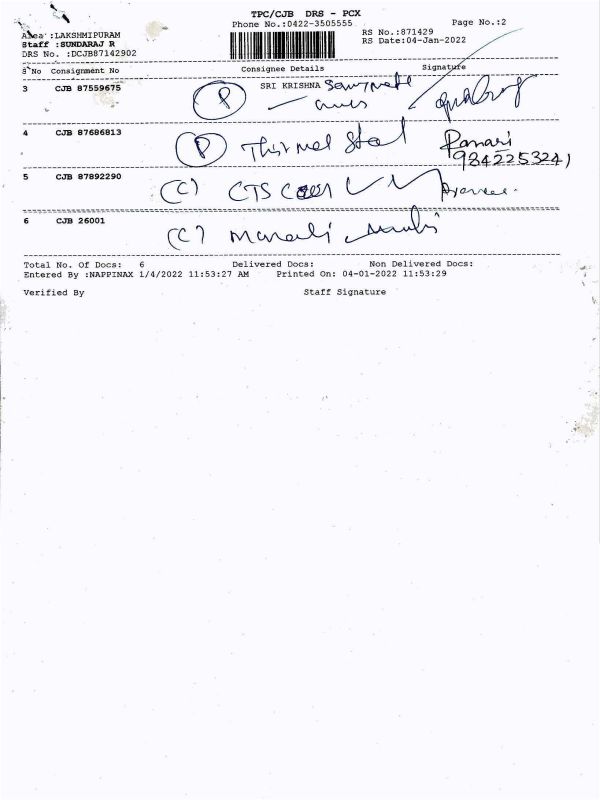 TPC/CJB DRS - PCX
Phone No.:0422-3505555 Page No.:2
Area :LAKSHMIPURAM RS No.:871429
Staff :SUNDARAJ R RS Date:04-Jan-2022
DRS No. :DCJB87142902
S No Consignment No Consignee Details Signature
3 CJB 87559675 (P) SRI KRISHNA
4 CJB 87686813 (P) Thirmal Steel
9342253241
5 CJB 87892290 (C) CTS
6 CJB 26001 (C)
Total No. Of Docs: 6 Delivered Docs: Non Delivered Docs:
Entered By :NAPPINAX 1/4/2022 11:53:27 AM Printed On: 04-01-2022 11:53:29
Verified By Staff Signature